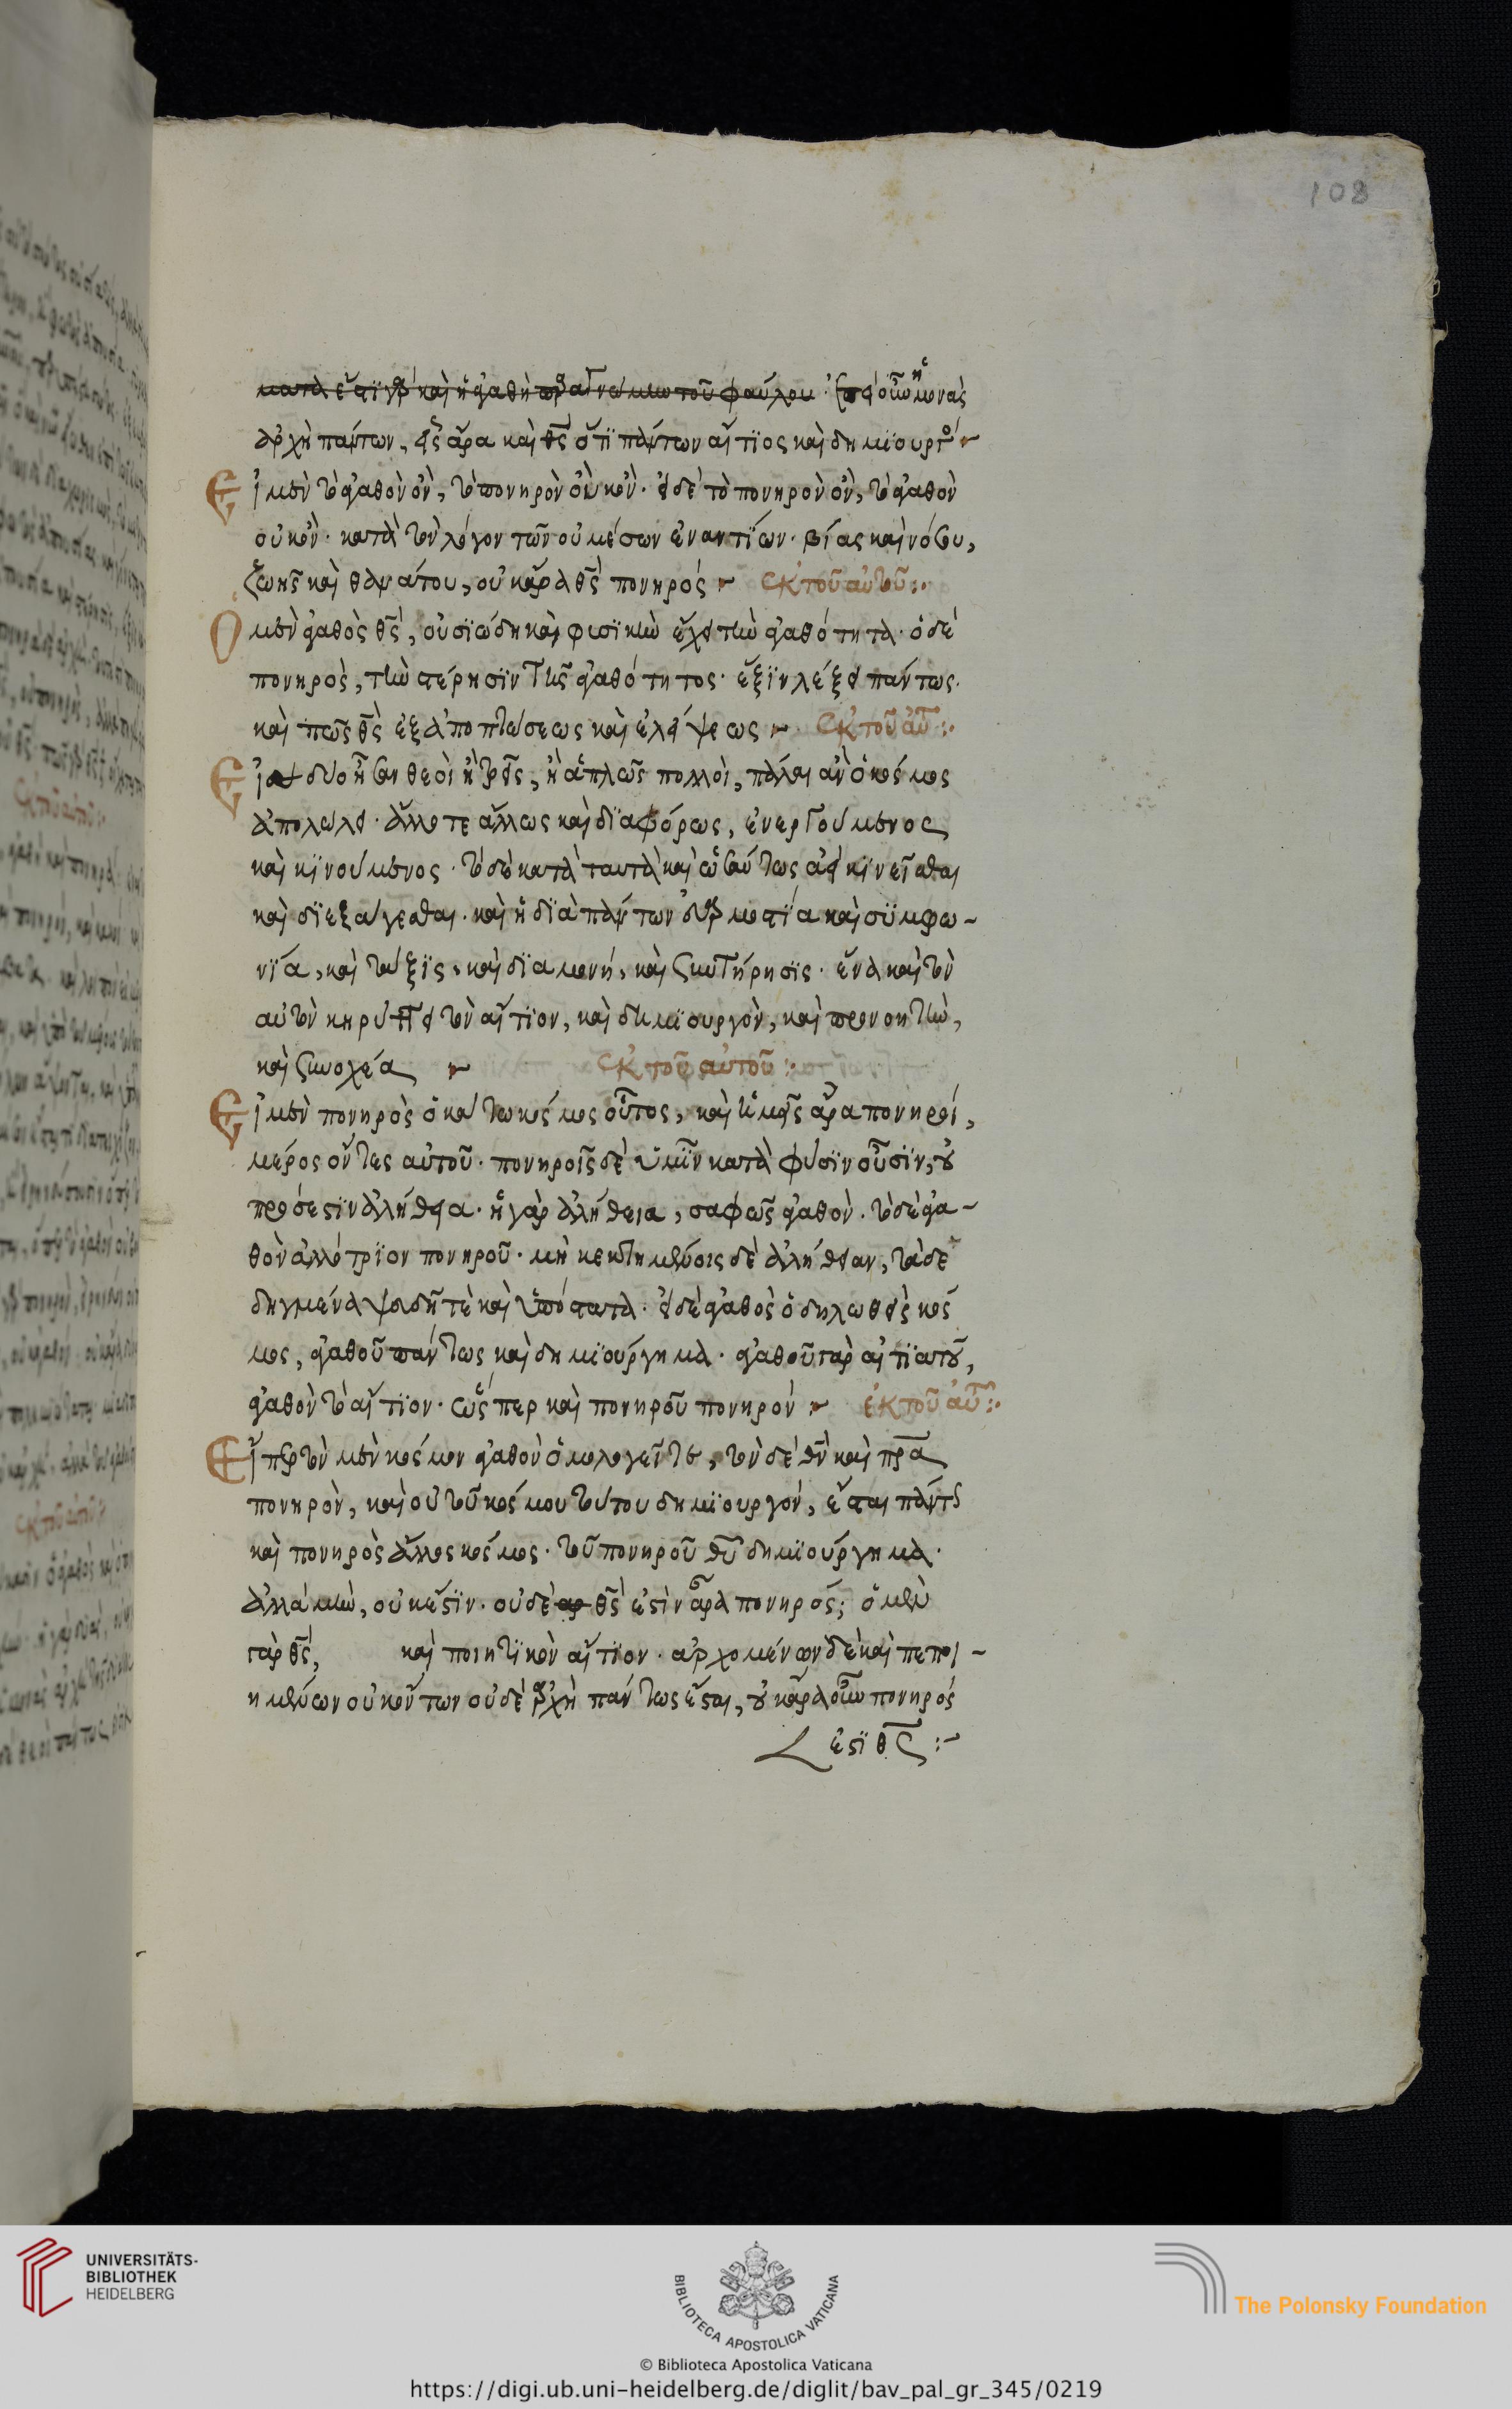 108
ματα ἔστι γὰρ καὶ ἡ ἀγαθὴ γνώμω τοῦ φαύλου· μονὰς
ἀρχὴ πάντων, εἷς ἄρα καὶ θς ὅτι πάντων αἴτϊος καὶ δημϊουργό
Εἰ μὲν τὸ ἀγαθὸν ὂν, τὸ πονηρὸν οὐκ ὂν· εἰ δὲ τὸ πονηρὸν ὂν, τὸ ἀγαθὸν
οὐκ ὂν· κατὰ τὸν λόγον τῶν οὐ μέσων ἐναντΐων· βίας καὶ νόσου,
ζωῆς καὶ θανάτου, οὐκ ἄρα θς πονηρός ἐκ τοῦ αὐτοῦ:·
Ὁ μὲν ἀγαθὸς θς, οὐσϊώδη καὶ φυσϊκὴν ἔχει τὴν ἀγαθότητα· ὁ δὲ
πονηρὸς, τὴν στέρησϊν τῆς ἀγαθότητος· ἕξϊν λέξει πάντως·
καὶ πῶς θς ἐξ ἀποπτώσεως καὶ ἐλλείψεως ἐκ τοῦ αὐτ:·
Εἰ δύο ἦσαν θεοὶ ἢ τρεῖς, ἢ ἁπλῶς πολλοὶ, πάλαι ἂν ὁ κόσμος
ἀπολώλει· ἄλλοτε ἄλλως καὶ δϊαφόρως, ἐνεργούμενος
καὶ κϊνούμενος· τὸ δὲ κατὰ ταυτὰ καὶ ὡσαύτως ἀεὶ κϊνεῖσθαι
καὶ δϊεξάγεσθαι· καὶ ἡ δϊὰ πάντων εὐαρμοστΐα καὶ συμφω-
νΐα, καὶ τάξϊς, καὶ δϊαμονή, καὶ συντήρησϊς· ἕνα καὶ τὸν
αὐτὸν κηρύττει τὸν αἴτϊον, καὶ δημϊουργὸν, καὶ προνοητὴν,
καὶ συνοχέα ἐκ τοῦ αὐτοῦ:
Εἰ μὲν πονηρὸς ὁ κάτω κόσμος οὗτος, καὶ ὑμεῖς ἄρα πονηροί,
μέρος ὄντες αὐτοῦ· πονηροῖς δὲ ὑμῖν κατὰ φύσϊν οὖσϊν, οὐ
πρόσεστϊν ἀλήθεια· ἡ γὰρ ἀλήθεια, σαφῶς ἀγαθὸν· τὸ δὲ ἀγα-
θὸν ἀλλότρϊον πονηροῦ· μὴ κεκτημένοις δὲ ἀλήθειαν, τὰ δε
δηγμένα ψευδῆ τὲ καὶ ὑπόστατα· εἰ δὲ ἀγαθὸς ὁ δηλωθεὶς κόσ
μος, ἀγαθοῦ πάντως καὶ δημϊούργημα· ἀγαθοῦ γὰρ αἰτϊατοῦ,
ἀγαθὸν τὸ αἴτϊον· ὥσπερ καὶ πονηροῦ πονηρόν ἐκ τοῦ αὐτ:·
Εἴπερ τὸν μὲν κόσμον ἀγαθὸν ὁμολογεῖτε, τὸν δὲ θν καὶ πρα
πονηρὸν, καὶ οὐ τοῦ κόσμου τούτου δημϊουργόν, ἔσται πάντ
καὶ πονηρὸς ἄλλος κόσμος· τοῦ πονηροῦ θυ δημϊούργημα·
ἀλλὰ μὴν, οὐκ ἔστϊν· οὐδὲ θς ἐστὶν ἄρα πονηρός; ὁ μὲν
γὰρ θς, καὶ ποιητϊκὸν αἴτϊον· ἀρχομένων δὲ καὶ πεποι-
ημένων οὐκ ὄντων οὐδὲ ἀρχὴ πάντως ἔσται, οὐκ ἄρα πονηρός
ἐστϊ θς:-
UNIVERSITÄTS-
BIBLIOTHEK
HEIDELBERG
BIBLIOTECA APOSTOLICA VATICANA
The Polonsky Foundation
© Biblioteca Apostolica Vaticana
https://digi.ub.uni-heidelberg.de/diglit/bav_pal_gr_345/0219